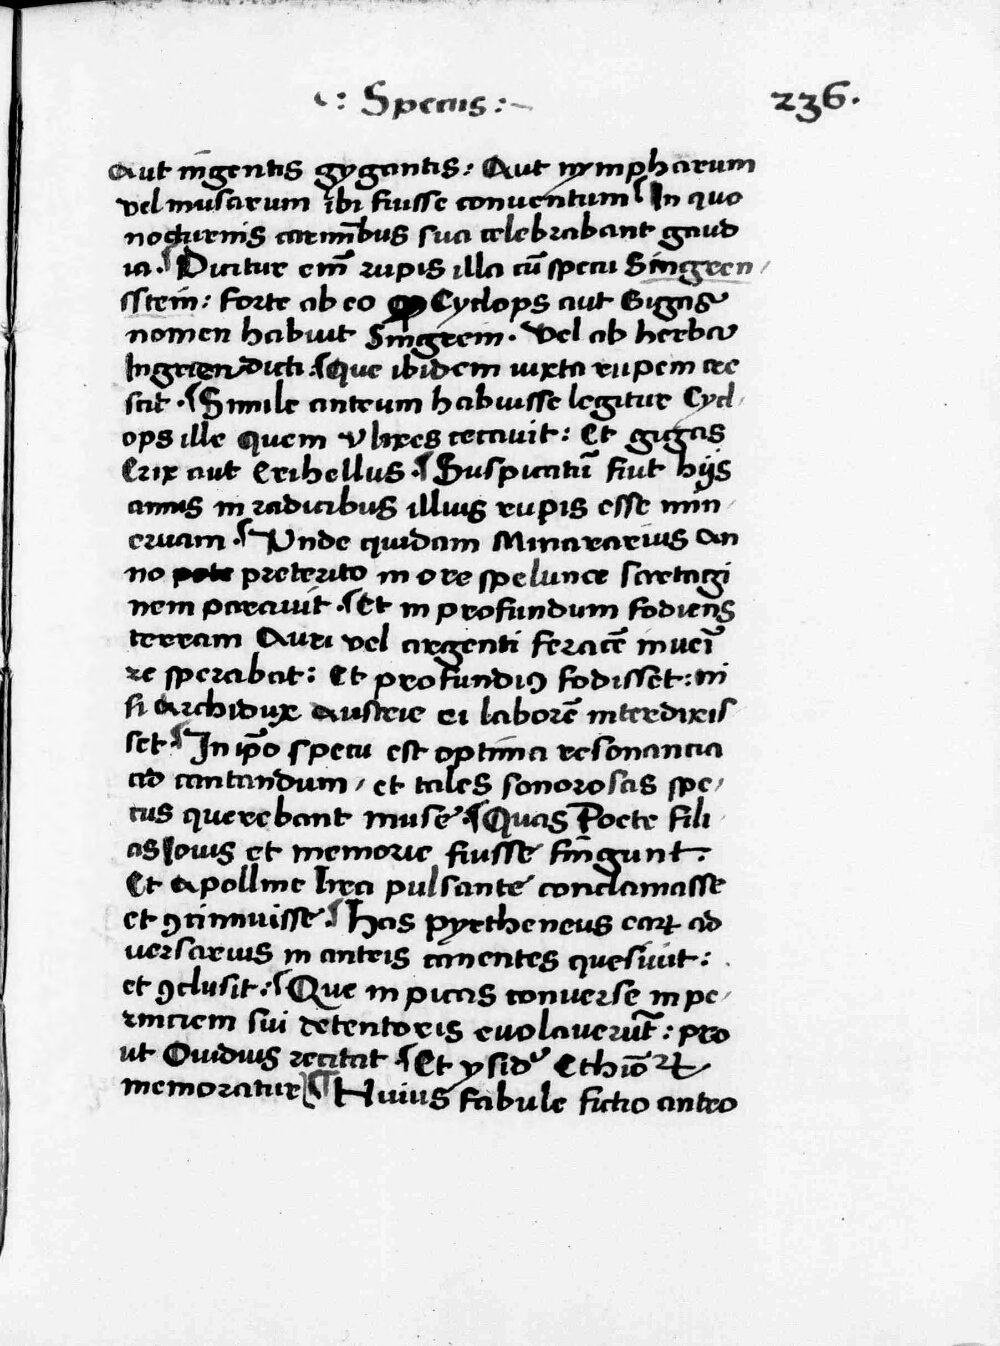 : Specus :~ 236.
Aut īngentis gygantis : Aut nympharum
vel musarum ibi fuisse conventum ¶ In quo
nocturnis carmībus sua celebrabant gaud
ia . ¶ Dicitur em̄ rupis illa cū specu Singren/
sstein : forte ab eo Cyclops aut Gigas
nomen habuit Singrein . Vel ab herba
Ingrien dicti : ¶ Que ibidem iuxta rupem cre
scit . ¶ Simile antrum habuisse legitur Cycl/
ops ille quem Vlixes cecavit : Et gigas
Erix aut Erihellus . ¶ Suspicatū fuit hijs
annis in radicibus illius rupis esse min/
ervam . ¶ Unde quidam Minararius an
no preterito in ore spelunce scretagi
nem paravit . ¶ Et in profundum fodiens
terram Auri vel argenti feracē inveī
re sperabat : Et profundiꝰ fodisset : ni
si Archidux Austrie ei laborē interdixis
set . ¶ In ip̄o specu est optima resonancia
ad cantandum / et tales sonorosas spe/
cus querebant muse . ¶ Quas Poete fili
as Iovis et memorie fuisse fīngunt .
Et Apolline lira pulsante conclamasse
et ꝯtinuisse . ¶ Has pyrtheneus eaꝝ ad
versarius in antris canentes quesivit :
et ꝯclusit : ¶ Que in picas converse in pe/
rniciem sui detentoris evolaverūt : pro
ut Ovidius recitat . ¶ Et ysidꝰ Ethīoꝝ
memoratur ¶ Huius fabule fictio antro